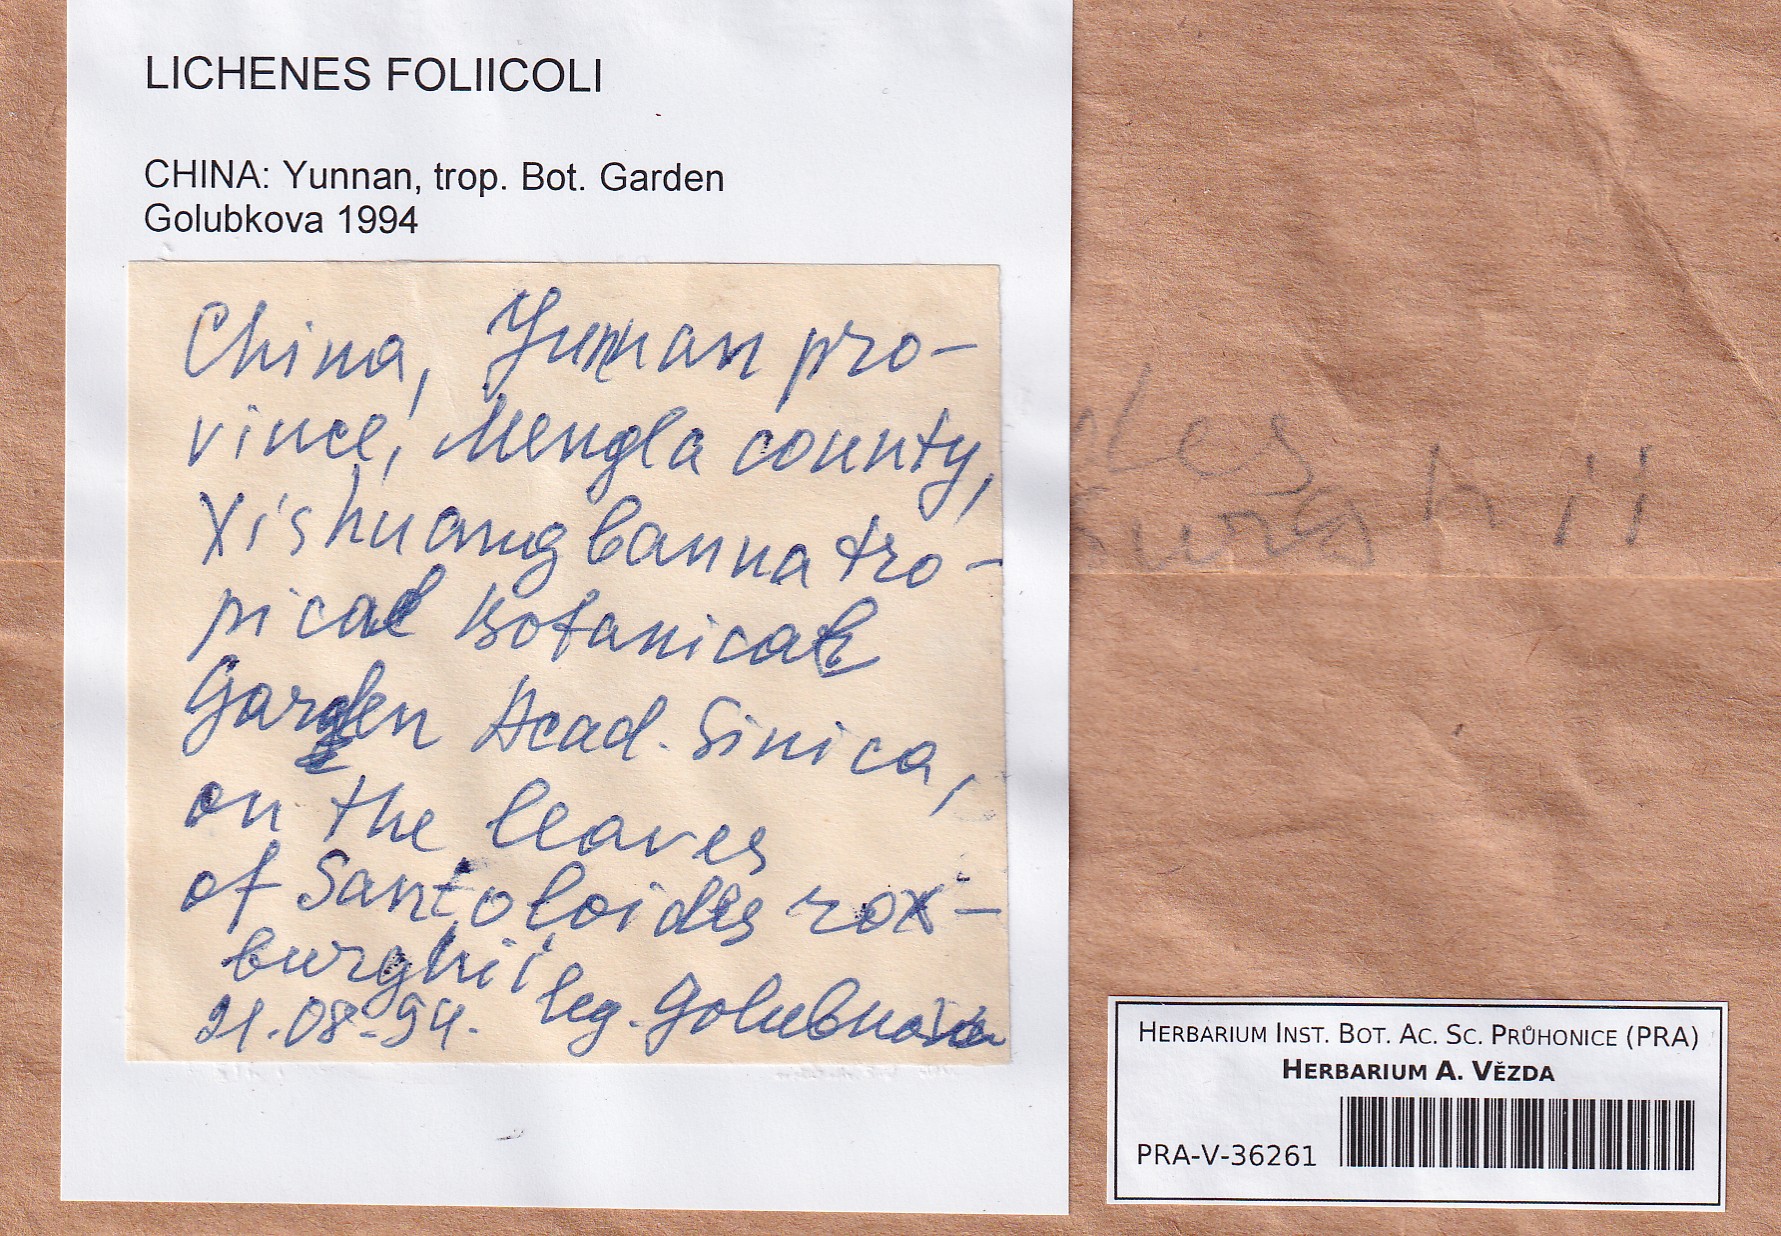 LICHENES FOLIICOLI
CHINA: Yunnan, trop. Bot. Garden
Golubkova 1994
China, Yunnan pro-
vince, Mengla county,
Xishuangbanna tro-
pical Botanical
Garden Acad. Sinica,
on the leaves
of Santoloides rox-
burghii
21.08.94. leg. Golubkova
des
burghii
HERBARIUM INST. BOT. AC. SC. PRŮHONICE (PRA)
HERBARIUM A. VĚZDA
PRA-V-36261